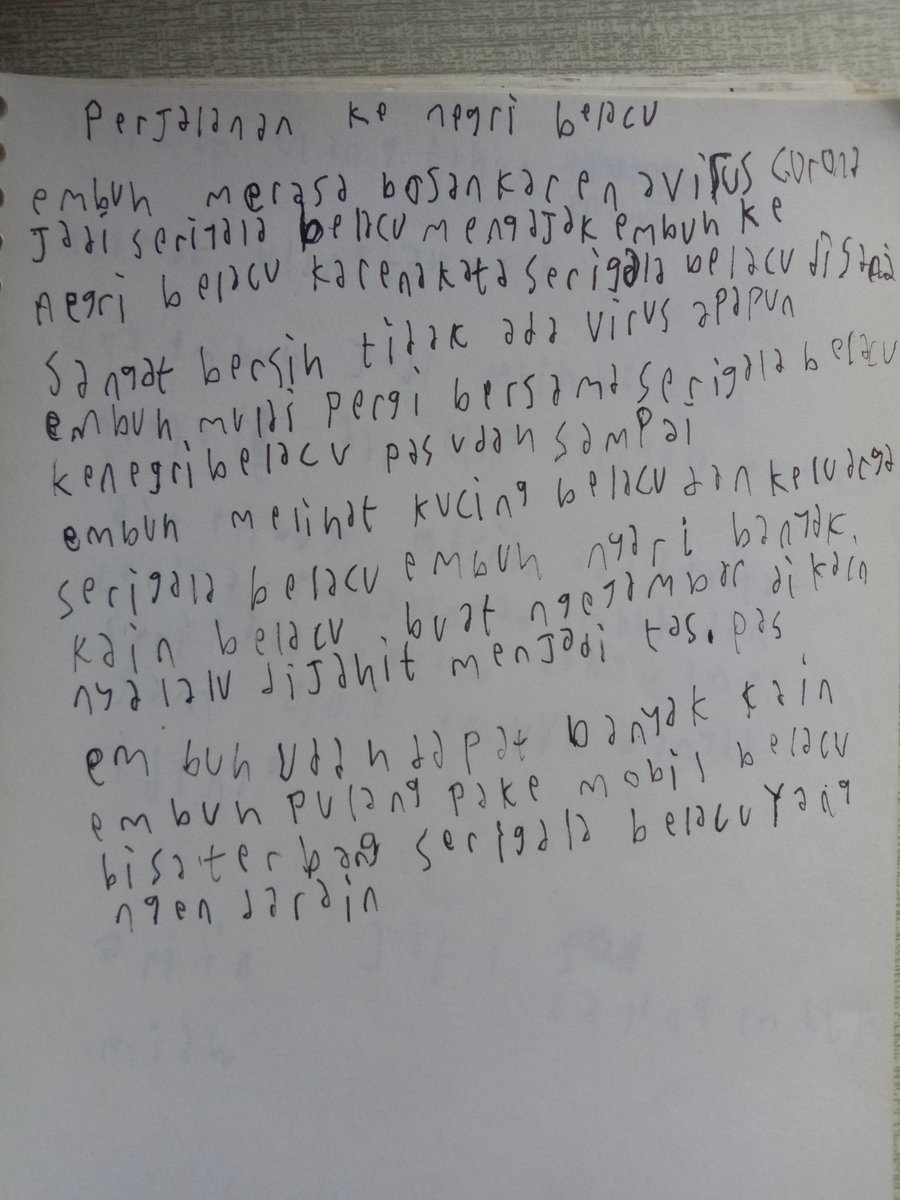 Perjalanan ke negri belacu
embuh merasa bosan karen a virus corona
Jadi serigala belacu mengajak embuh ke
negri belacu karena kata serigala belacu disana
sangat bersih tidak ada virus apapun
embuh mulai pergi bersama serigala belacu
kenegri belacu pas udah sampai
embuh melihat kucing belacu dan keluarga
serigala belacu embuh nyari banyak
kain belacu buat ngegambar di kain
nya lalu dijahit menjadi tas. pas
embuh udah dapat banyak kain
embuh pulang pake mobil belacu
bisa terbang serigala belacu yang
ngendarain